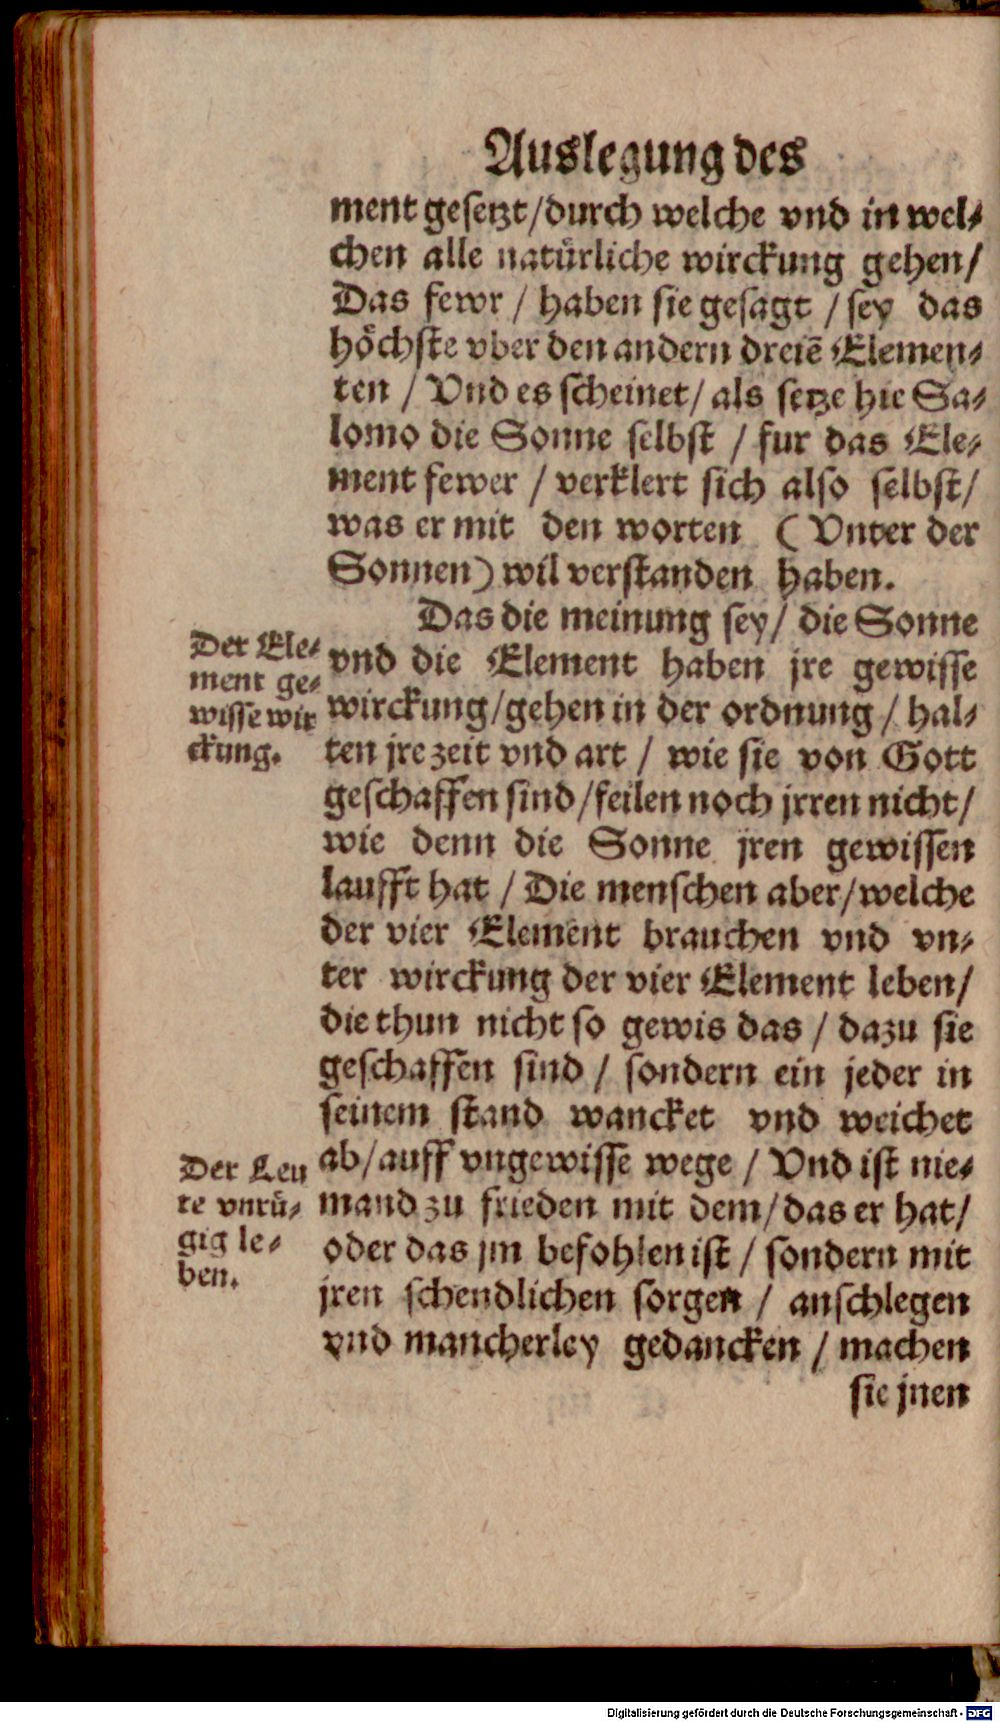 Auslegung des
ment gesetzt/durch welche vnd in wel⸗
chen alle natuͤrliche wirckung gehen/
Das fewr / haben sie gesagt / sey das
hoͤchste vber den andern dreiē Elemen⸗
ten / Vnd es scheinet/ als setze hie Sa⸗
lomo die Sonne selbst / fur das Ele⸗
ment fewer / verklert sich also selbst/
was er mit den worten (Vnter der
Sonnen) wil verstanden haben.
Das die meinung sey/ die Sonne
vnd die Element haben jre gewisse
wirckung/gehen in der ordnung / hal⸗
ten jre zeit vnd art / wie sie von Gott
geschaffen sind/feilen noch jrren nicht/
wie denn die Sonne jren gewissen
laufft hat / Die menschen aber/welche
der vier Element brauchen vnd vn⸗
ter wirckung der vier Element leben/
die thun nicht so gewis das / dazu sie
geschaffen sind / sondern ein jeder in
seinem stand wancket vnd weichet
ab/auff vngewisse wege / Vnd ist nie⸗
mand zu frieden mit dem/das er hat/
oder das jm befohlen ist / sondern mit
jren schendlichen sorgen / anschlegen
vnd mancherley gedancken / machen
sie jnen
Der Ele⸗
ment ge⸗
wisse wir
ckung.
Der Leu
te vnruͤ⸗
gig le⸗
ben.
Digitalisierung gefördert durch die Deutsche Forschungsgemeinschaft - DFG